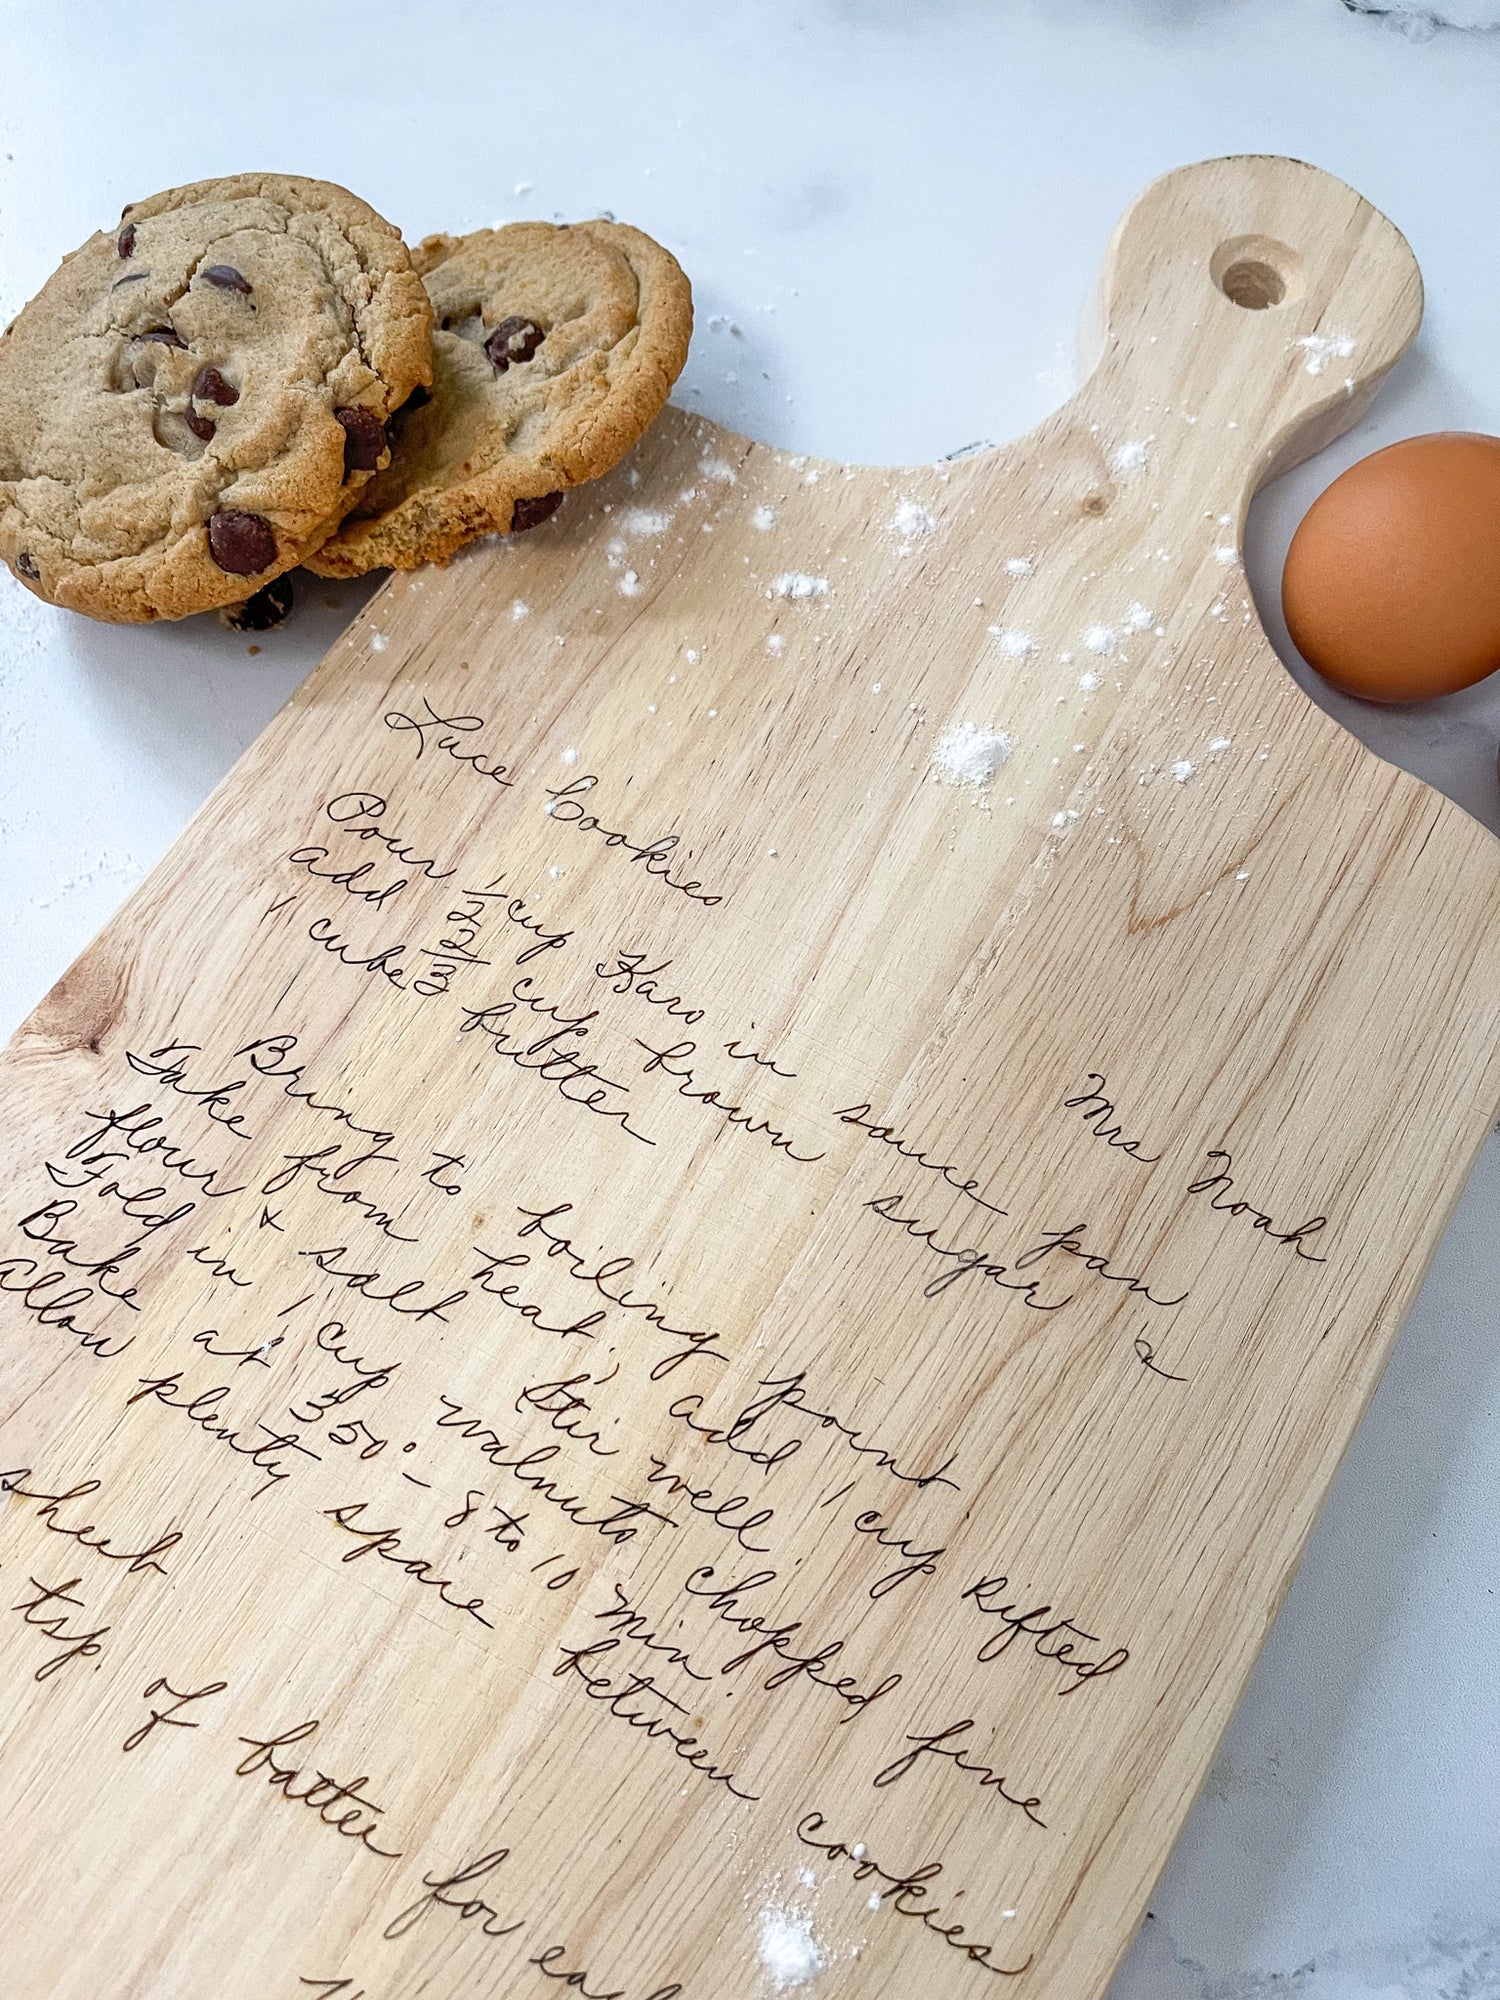 Luce Cookies
Mrs Noah
Pour 1/2 cup Karo in sauce pan &
add 2/3 cup brown sugar
1 cube butter
Bring to boiling point
Take from heat, add 1 cup sifted
flour & salt. Stir well.
Fold in 1 cup walnuts chopped fine
Bake at 350° - 8 to 10 min.
Allow plenty space between cookies
sheet
tsp. of batter for